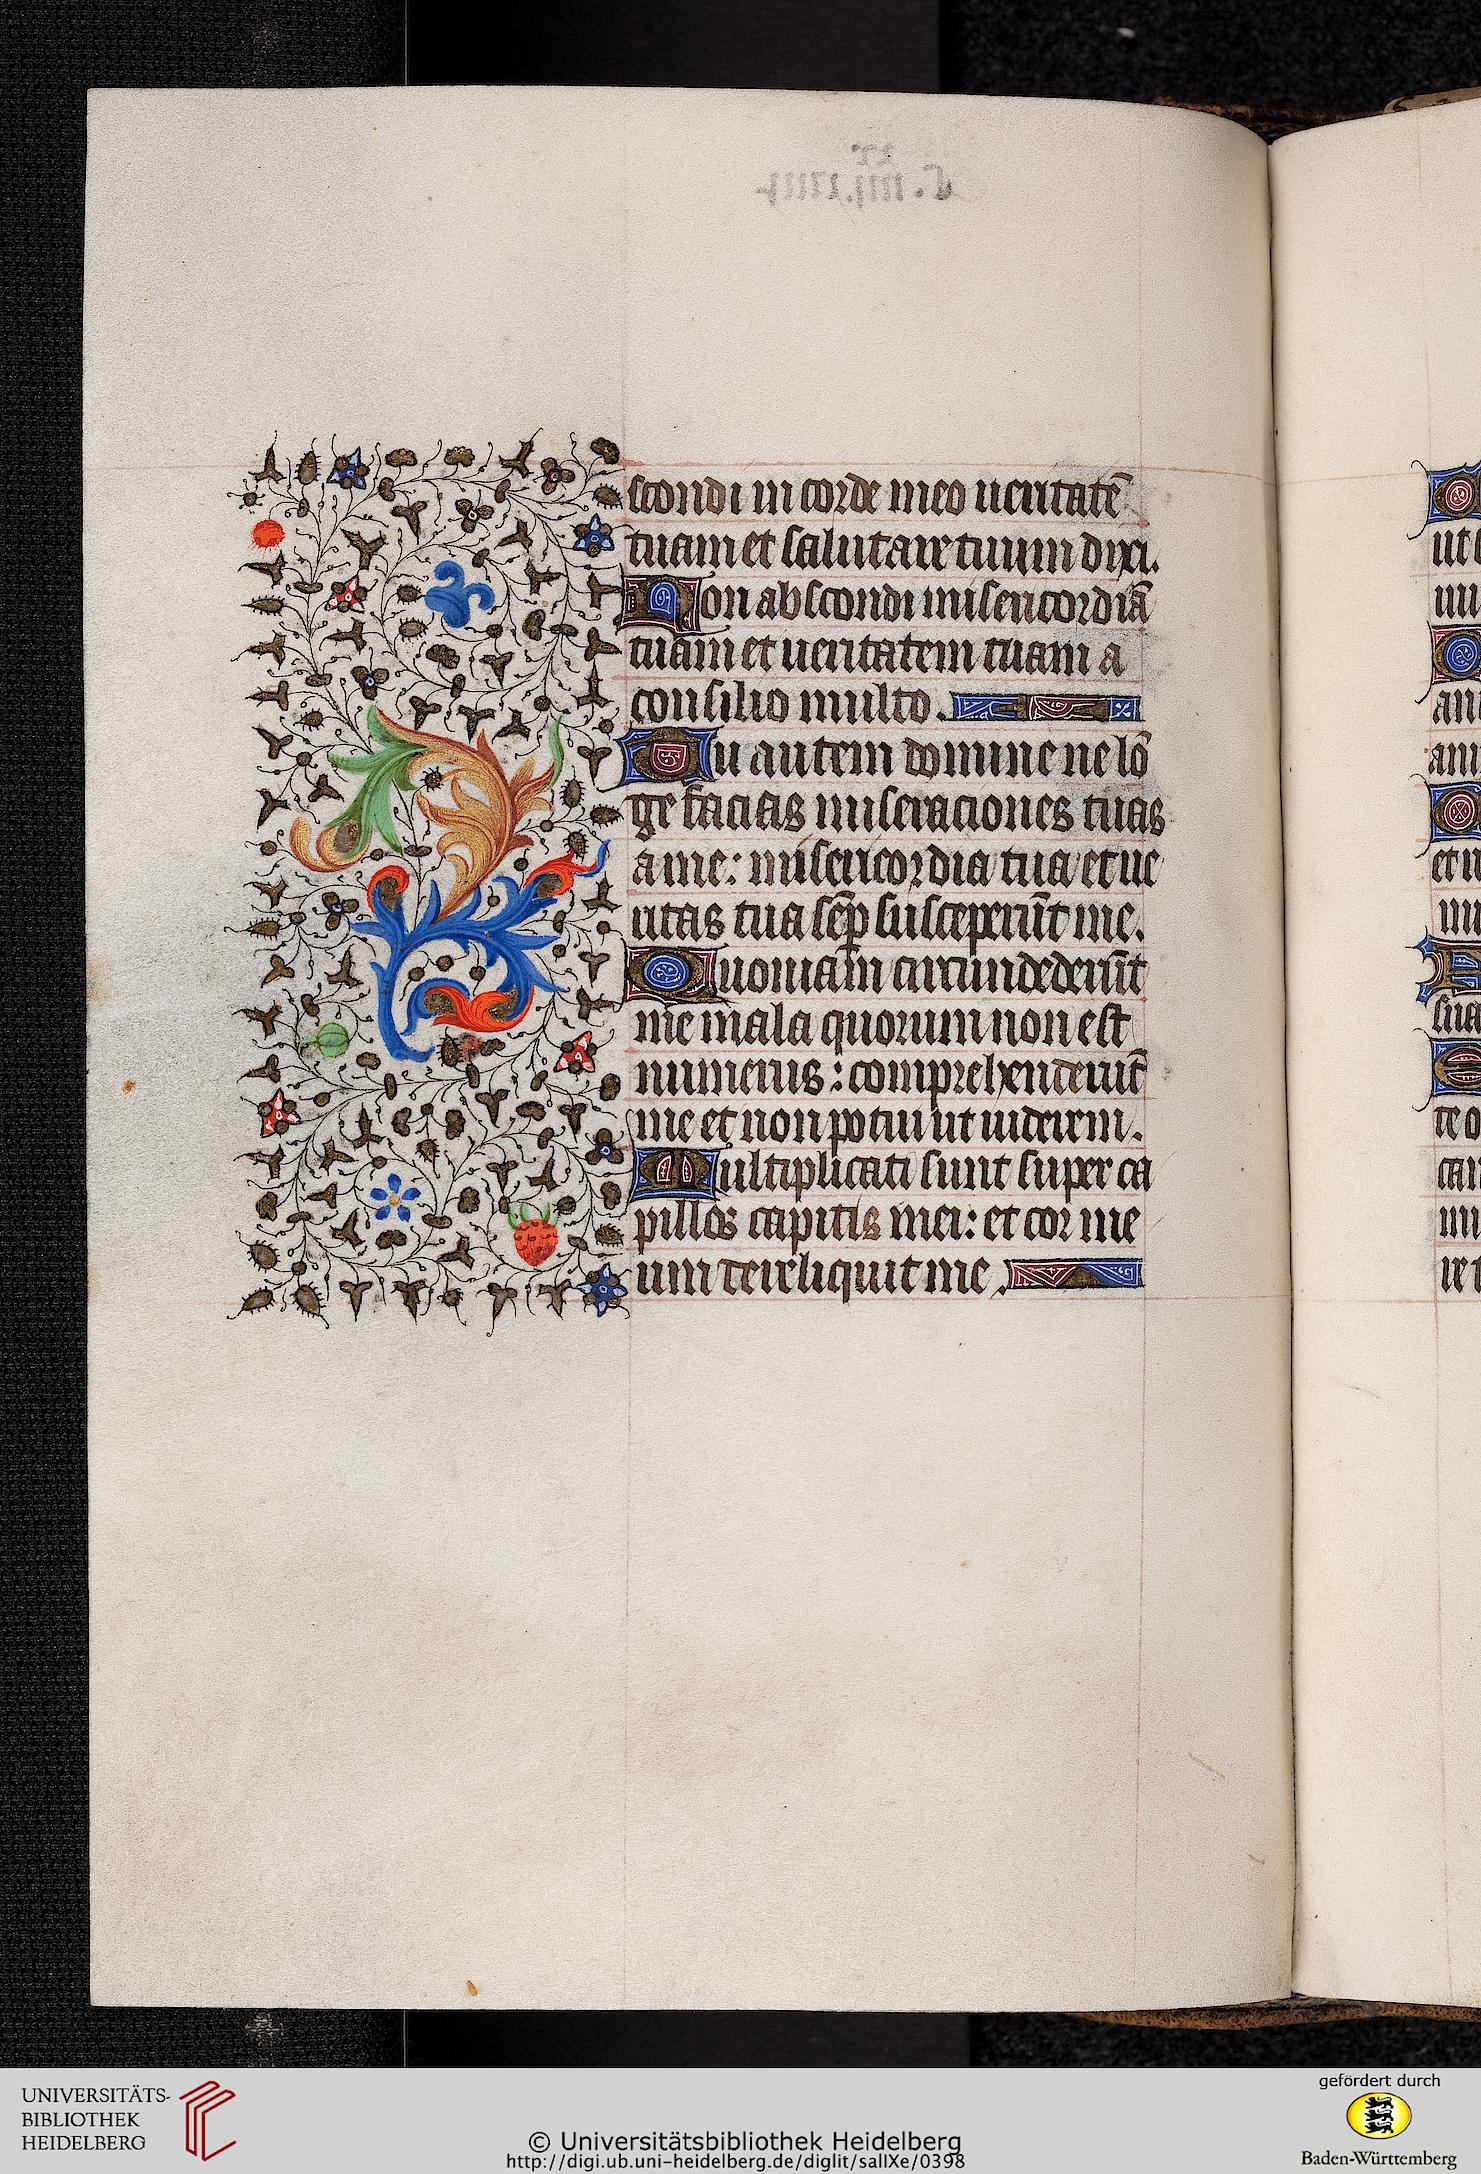 scondi in corde meo ueritatē
tuam et salutare tuum dixi.
Non abscondi misericordiā
tuam et ueritatem tuam a
consilio multo.
Tu autem domine ne lō
ge facias miseraciones tuas
a me: misericordia tua et ue
ritas tua sēp susceperūt me.
Quoniam circundederūt
me mala quorum non est
numerus: comprehenderūt
me et non potui ut uiderem.
Multiplicati sunt super ca
pillos capitis mei: et cor me
um dereliquit me.
ut
ani
ani
et
sua
te
UNIVERSITÄTS-
BIBLIOTHEK
HEIDELBERG
© Universitätsbibliothek Heidelberg
http://digi.ub.uni-heidelberg.de/diglit/salIXe/0398
gefördert durch
Baden-Württemberg